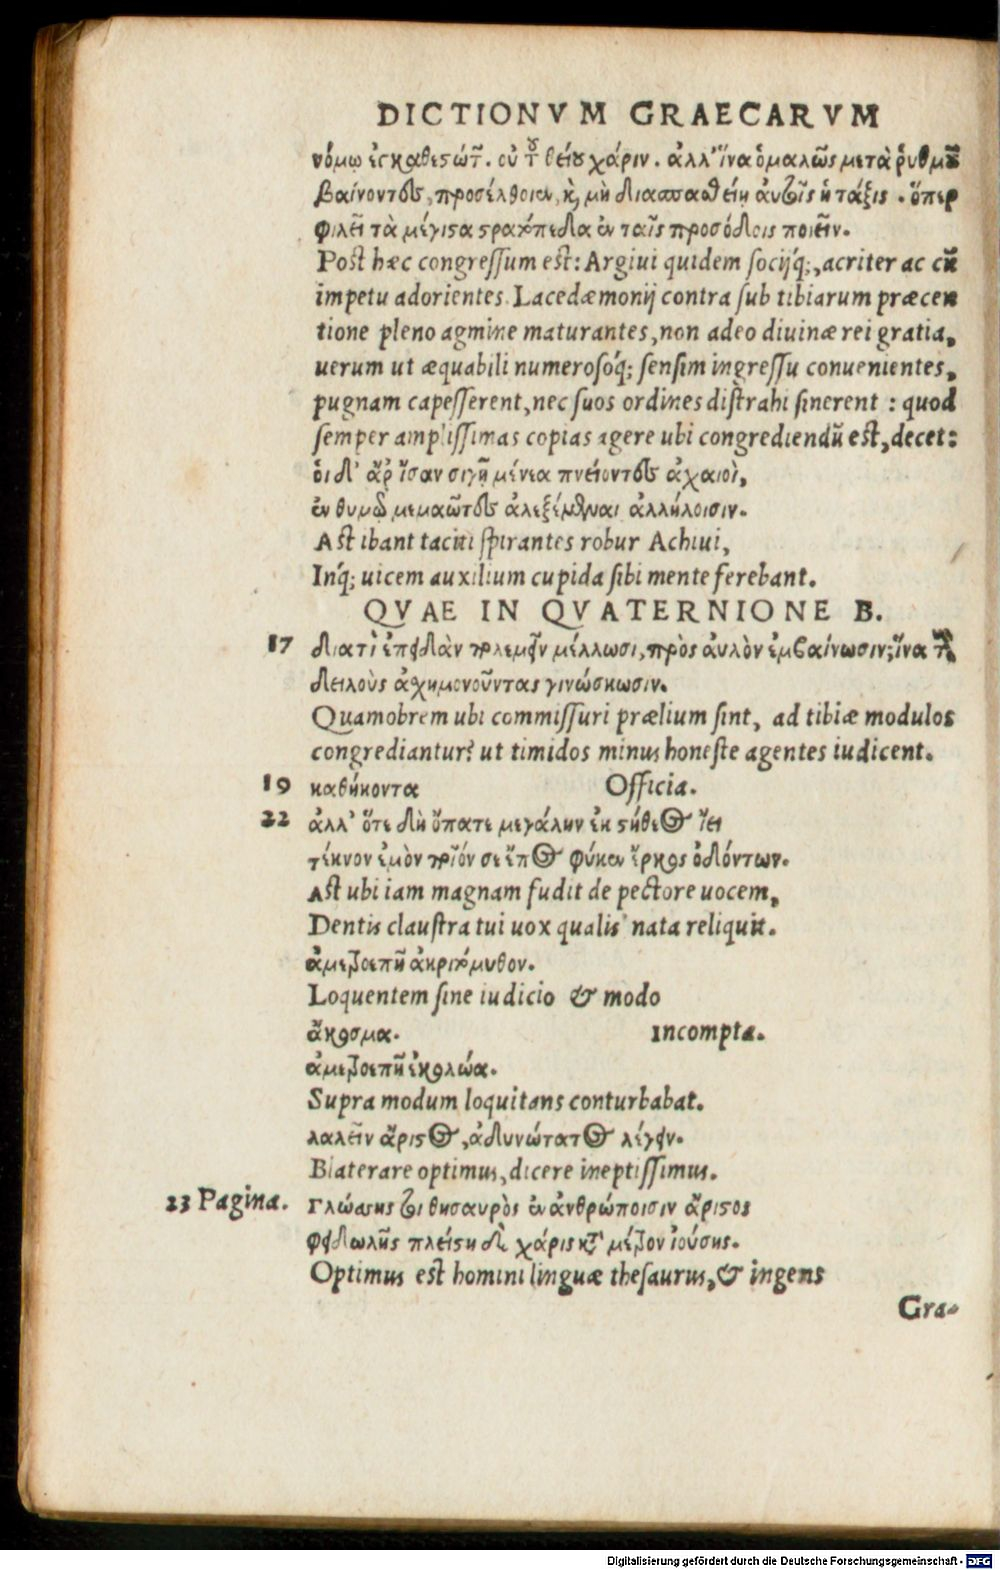 DICTIONVM GRAECARVM
νόμῳ ἐγκαθεστώτ̃. οὐ τ͂ θείου χάριν. ἀλλ' ἵνα ὁμαλῶς μετὰ ῥυθμοῦ
βαίνοντες, προσέλθοιεν, κ̀, μὴ διασπαθείη αὐτοῖς ἡ τάξις. ὅπερ
φιλεῖ τὰ μέγιστα στρατόπεδα ἐν ταῖς προσόδοις ποιεῖν.
Post hæc congreſſum est: Argiui quidem ſocijq́;, acriter ac cũ
impetu adorientes. Lacedæmonij contra ſub tibiarum præcen
tione pleno agmine maturantes, non adeo diuinæ rei gratia,
uerum ut æquabili numeroſoq́; ſenſim ingreſſu conuenientes,
pugnam capeſſerent, nec ſuos ordines diſtrahi ſinerent : quod
ſemper ampliſſimas copias agere ubi congrediendũ eſt, decet:
οἱ δ' ἄρ' ἴσαν σιγῇ μένεα πνείοντες ἀχαιοὶ,
ἐν θυμῷ μεμαῶτες ἀλεξέμεναι ἀλλήλοισιν.
Aſt ibant taciti ſpirantes robur Achiui,
Inq́; uicem auxilium cupida ſibi mente ferebant.
QVAE IN QVATERNIONE B.
17 διατὶ ἐπειδὰν πολεμεῖν μέλλωσι, πρὸς αὐλὸν ἐμβαίνωσιν; ἵνα τοὺς
δειλοὺς ἀσχημονοῦντας γινώσκωσιν.
Quamobrem ubi commiſſuri prælium ſint, ad tibiæ modulos
congrediantur? ut timidos minus honeſte agentes iudicent.
19 καθήκοντα Officia.
22 ἀλλ' ὅτε δὴ ὄπατε μεγάλην ἐκ στήθεος ἵει
τέκνον ἐμὸν ποῖόν σε ἔπος φύκεν ἕρκος ὀδόντων.
Aſt ubi iam magnam fudit de pectore uocem,
Dentis clauſtra tui uox qualis nata reliquit.
ἀμετροεπῆ ἀκριτόμυθον.
Loquentem ſine iudicio & modo
ἄκοσμα. Incompta.
ἀμετροεπῆ ἐκολώα.
Supra modum loquitans conturbabat.
λαλεῖν ἄριστος, ἀδυνώτατος λέγειν.
Blaterare optimus, dicere ineptiſſimus.
23 Pagina. γλώσσης τοι θησαυρὸς ἐν ἀνθρώποισιν ἄριστος
φειδωλῆς πλείστη δὲ χάρις κατὰ μέτρον ἰούσης.
Optimus eſt homini linguæ theſaurus, & ingens
Gra-
Digitalisierung gefördert durch die Deutsche Forschungsgemeinschaft - DFG